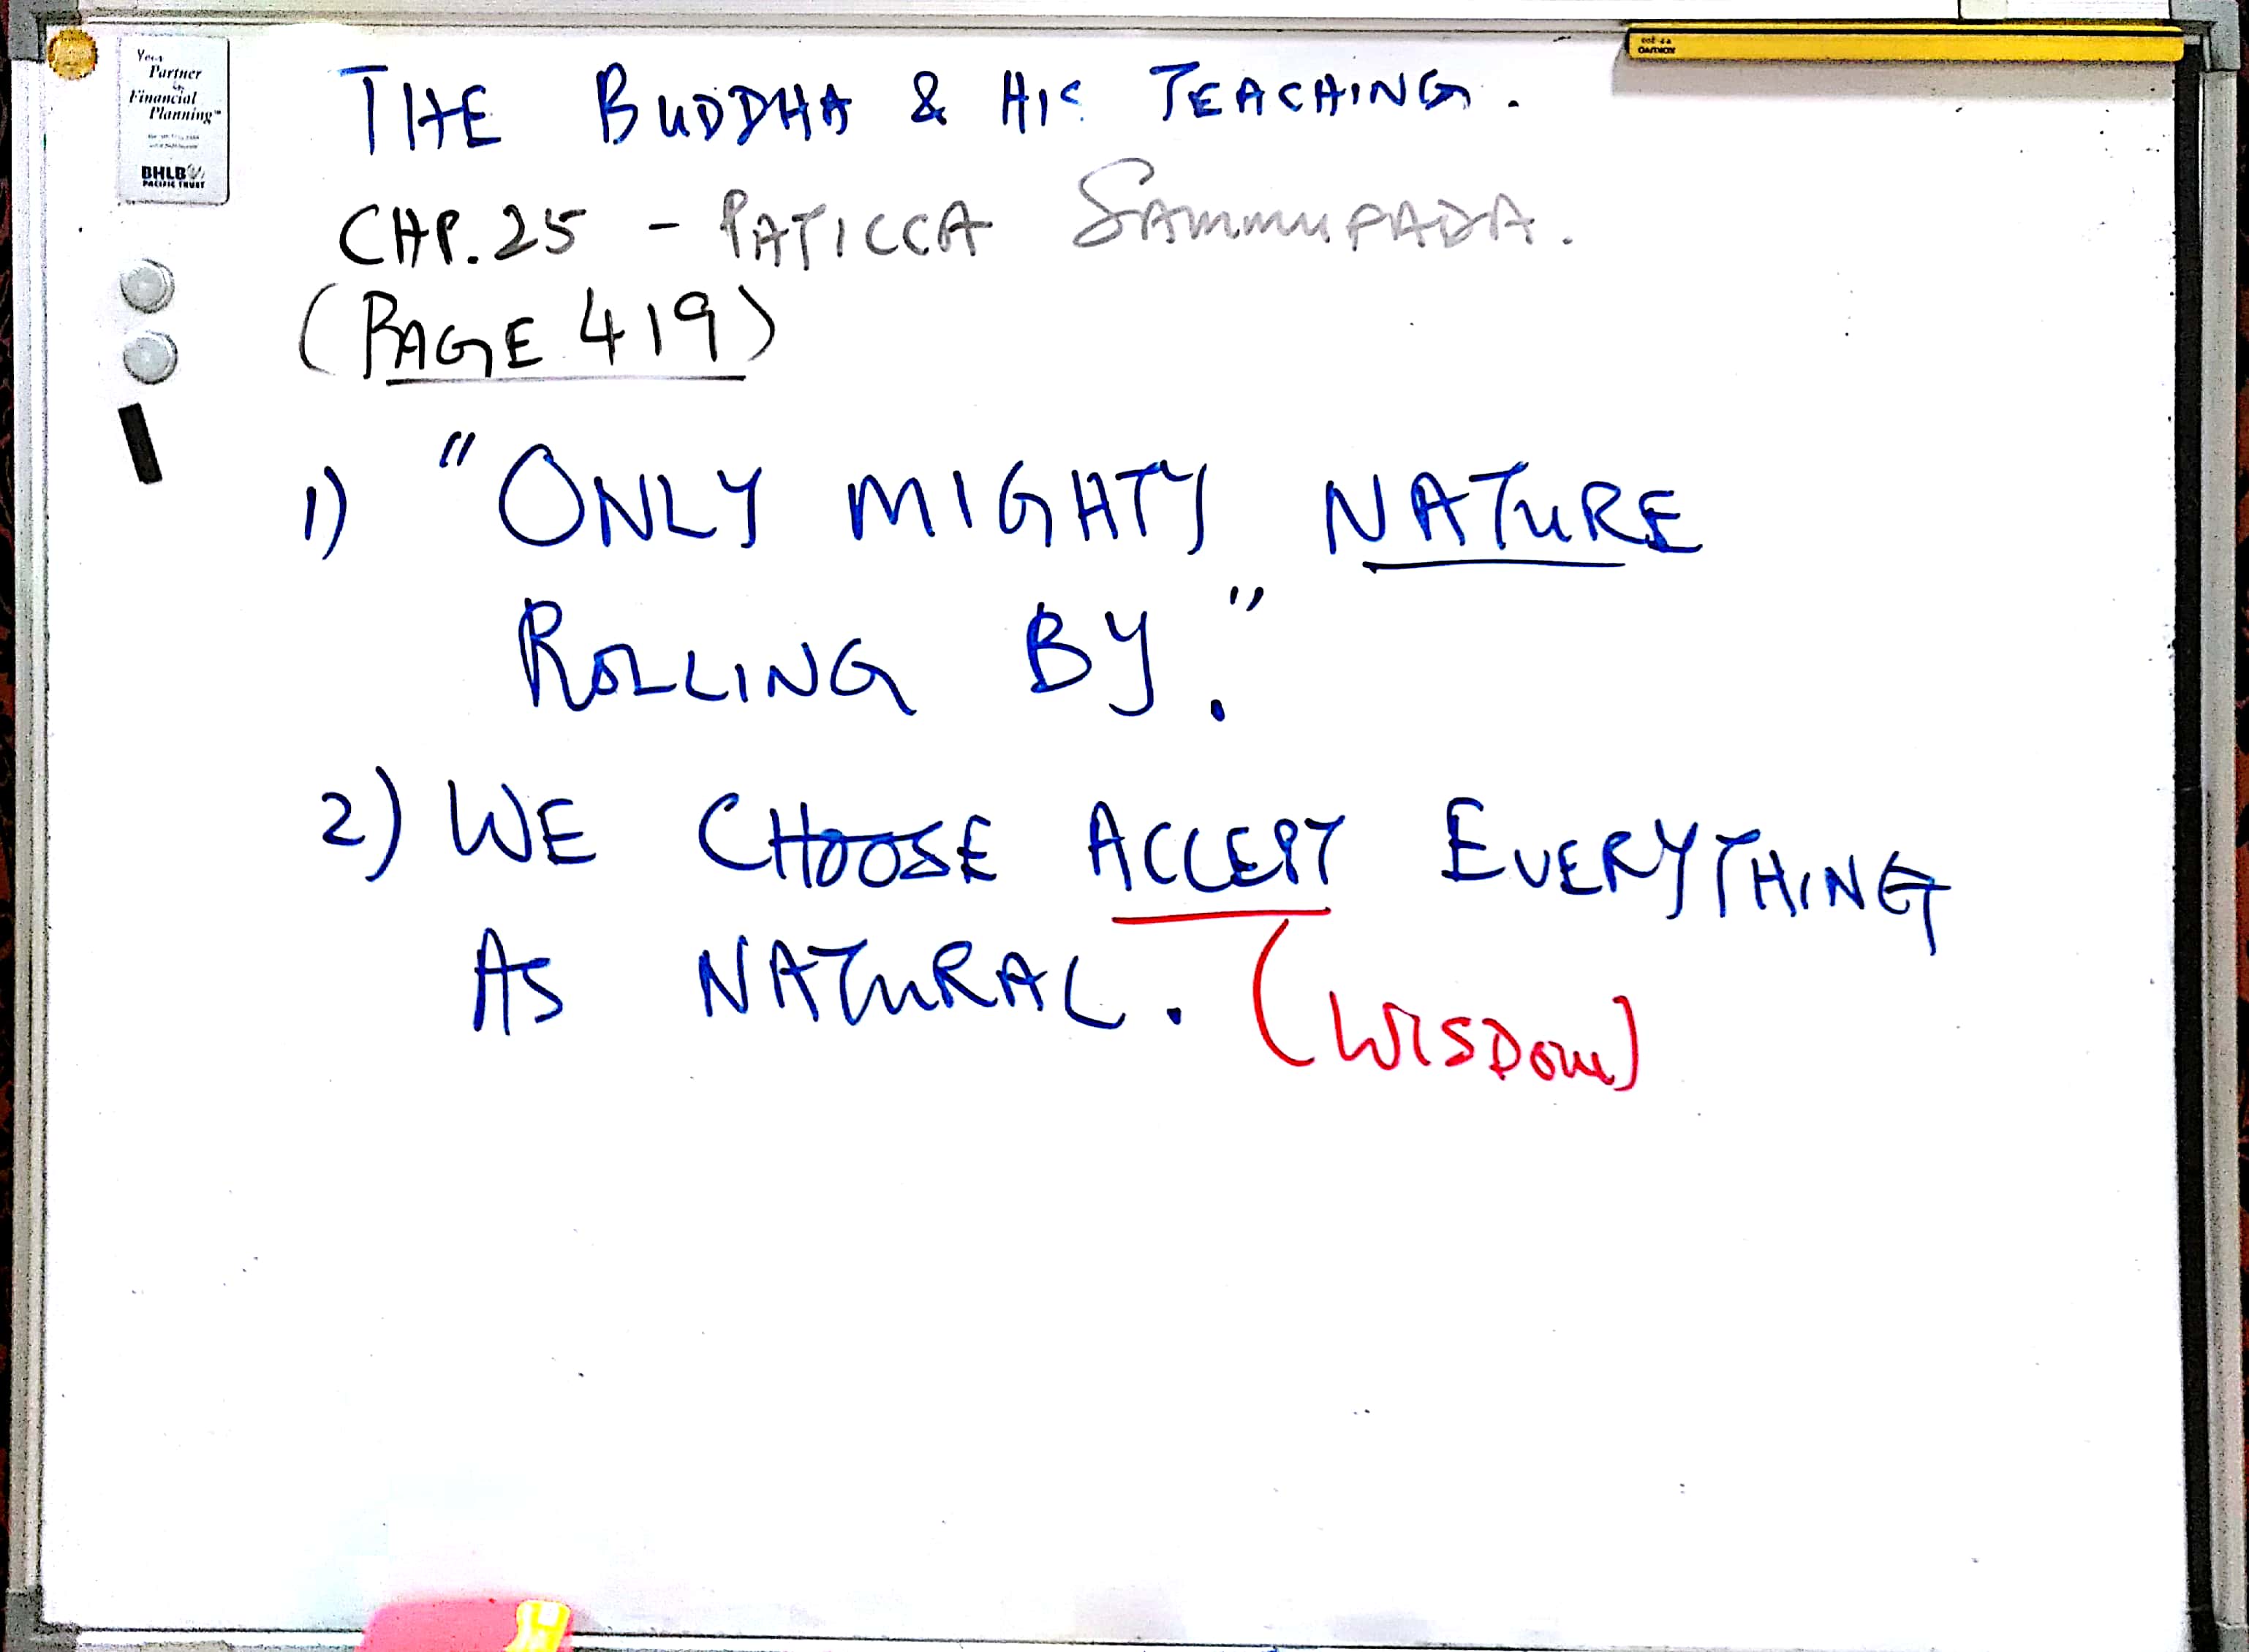 Your
Partner
in
Financial
Planning™
BHLB
PACIFIC TRUST
THE BUDDHA & HIS TEACHING.
CHP.25 - PATICCA SAMMUPADA.
(PAGE 419)
1) "ONLY MIGHTY NATURE
ROLLING BY."
2) WE CHOOSE ACCEPT EVERYTHING
AS NATURAL. (WISDOM)